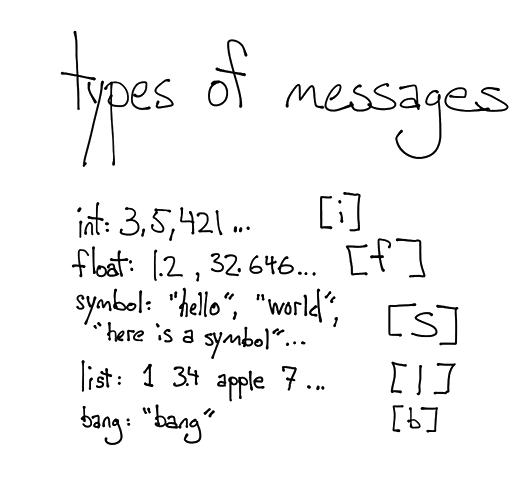 types of messages
int: 3, 5, 421... [i]
float: 1.2, 32.646... [f]
symbol: "hello", "world",
"here is a symbol"... [S]
list: 1 34 apple 7... [l]
bang: "bang" [b]